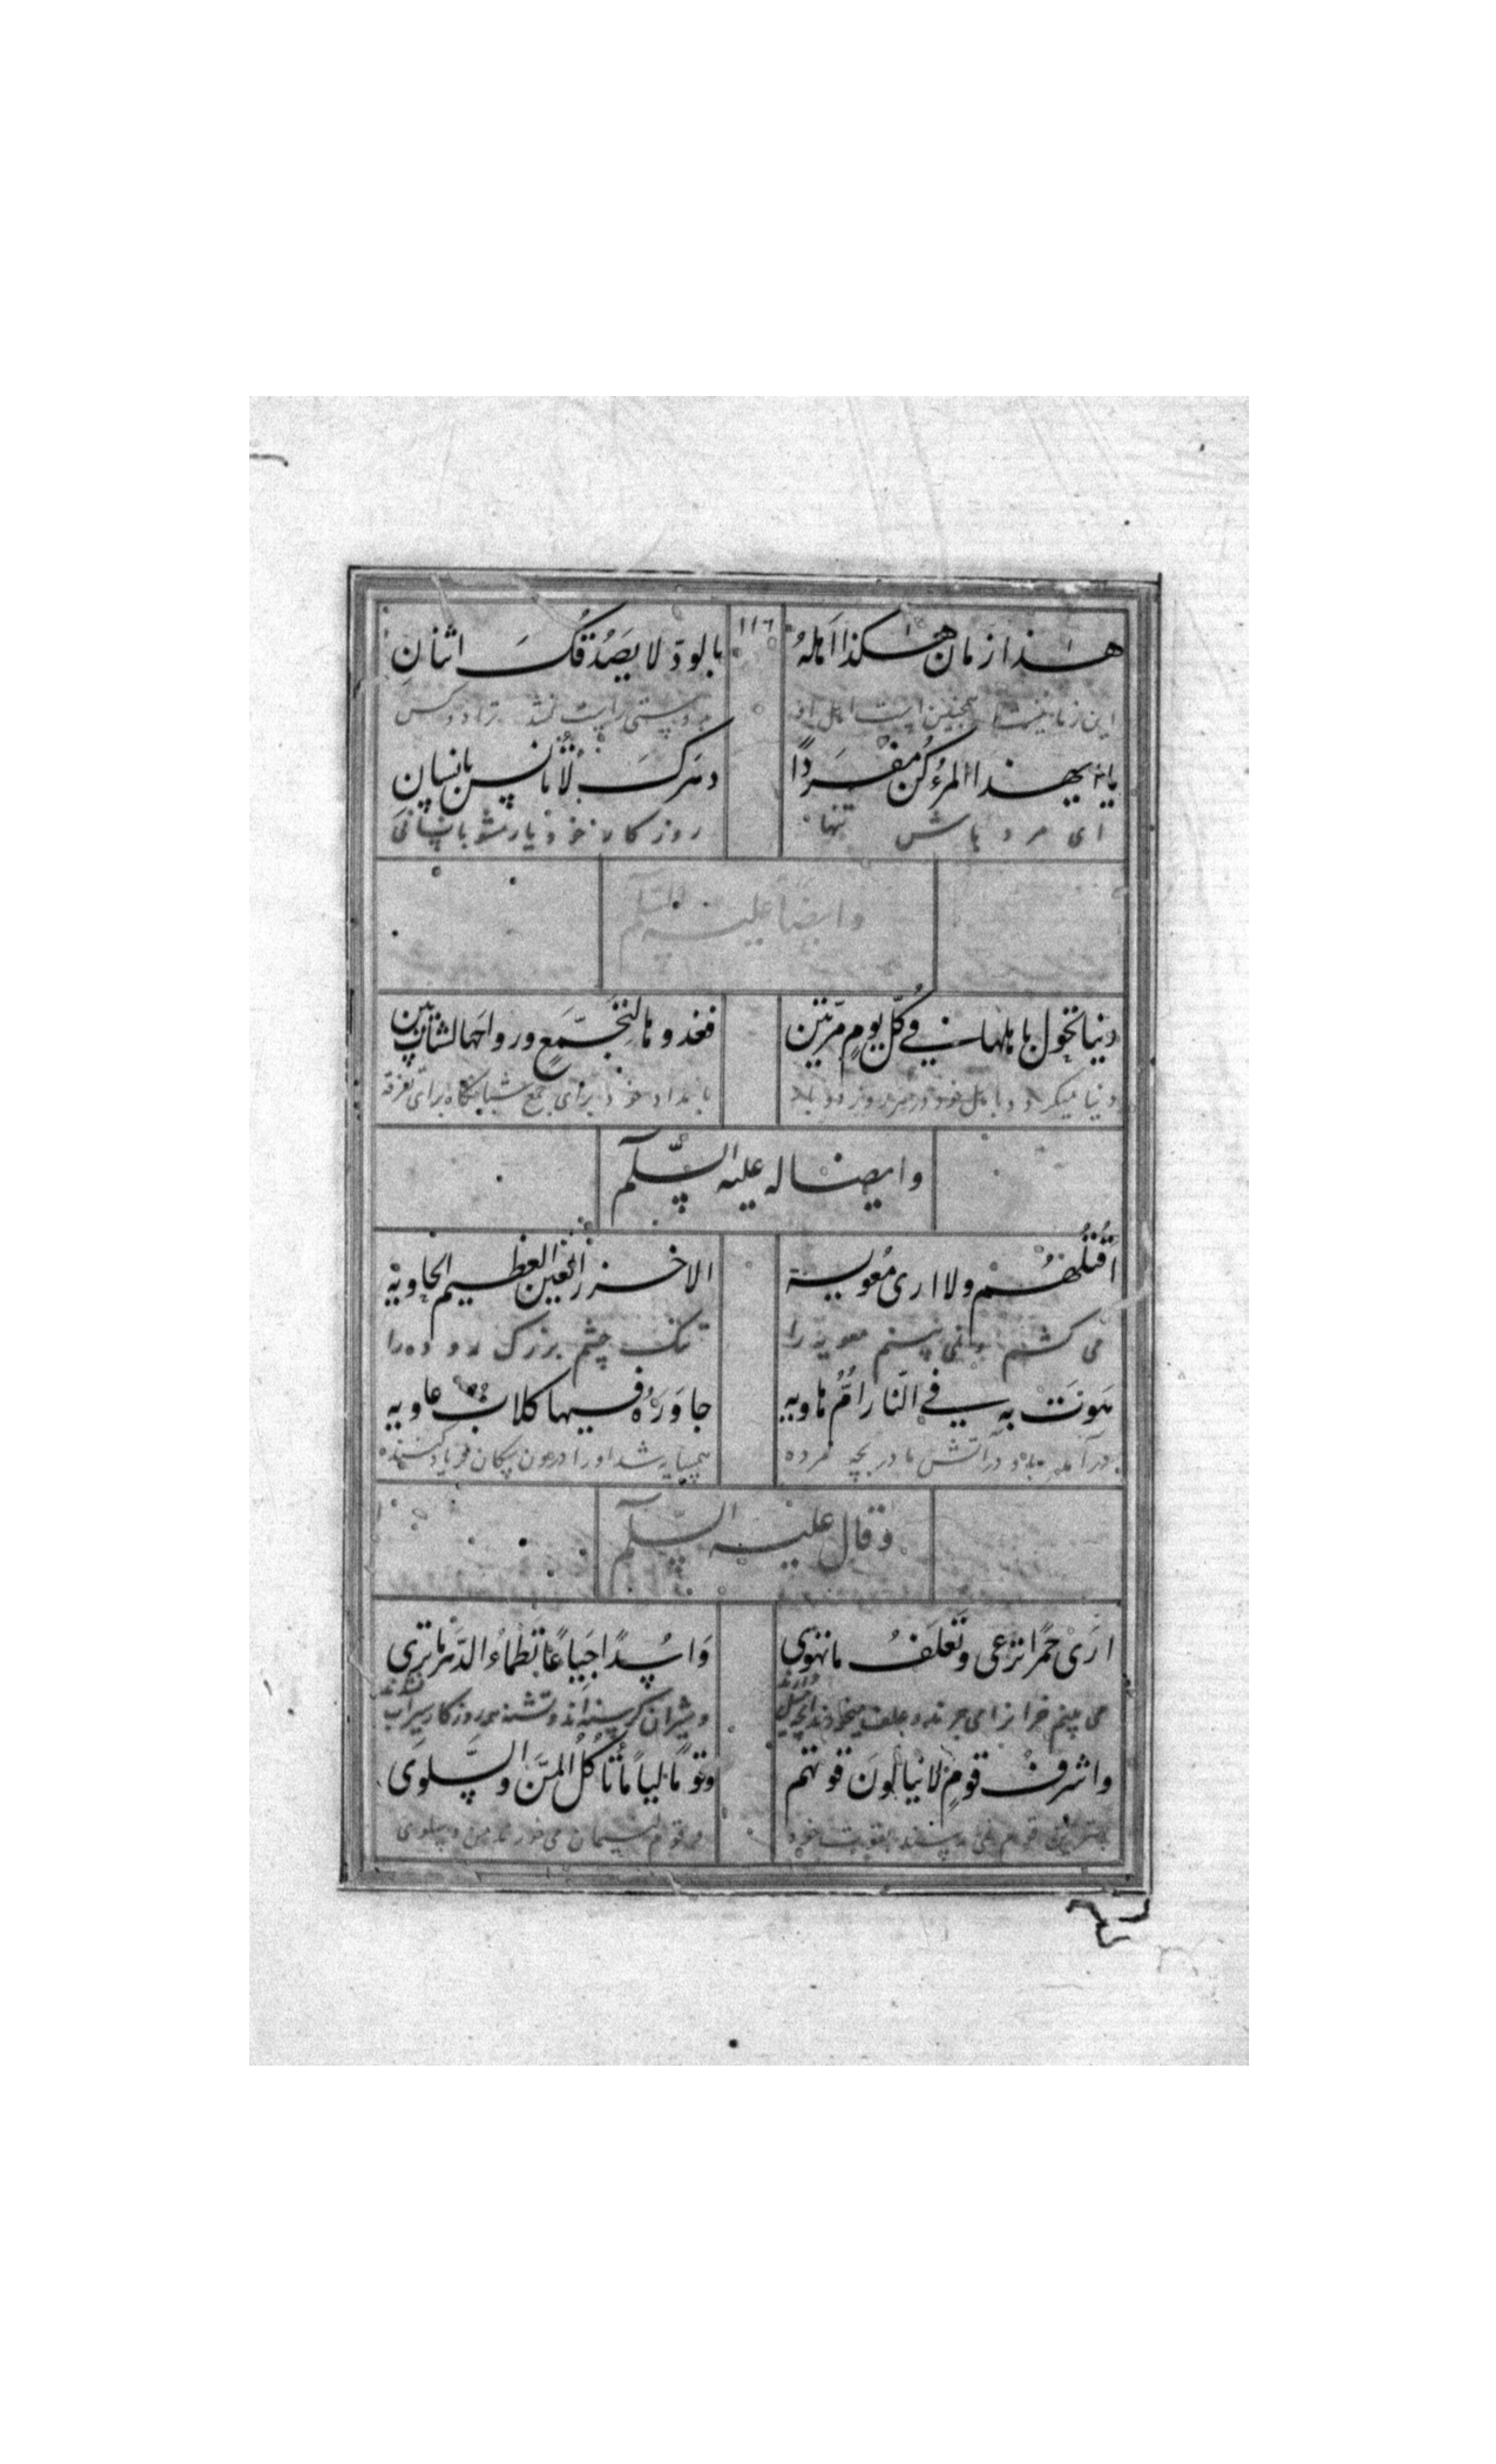 هذا زمان هكذا اهله بالود لا يصدقك اثنان
این زمانیست همچنین است اهل او بدوستی راست نشد ترا دو کس
يا ايهذا المرء كن مفردا دهرك لا تانس بانسان
ای مرد باش تنها روزگار خود یار مشو بانسانی
١١٦
وايضا عليه السلم
دنيا تحول باهلها في كل يوم مرتين فغدوها لتجمع ورواحها لشتات بين
دنیا میگردد باهل خود در هر روز دو بار بامداد خود برای جمع شبانگاه برای تفرقه
وايضا له عليه السلم
اقتلهم ولا ارى معوية الاخزر العين العظيم الحاوية
می کشم و نمی بینم معویه را تنک چشم بزرک روده را
هوت به في النار ام هاويه جاوره فيها كلاب عاويه
درآمد در آتش مادر بچه مرده همسایه شد او را درون سکان فریاد کننده
وقال عليه السلم
ارى حمرا ترعى وتعلف ما تهوى واسدا جياعا تظماء الدهر ما تروى
می بینم خرانرا می چرند و علف میخورند آنچه میل دارند و شیران کرسنه اند و تشنه روزکار سیراب نشدند
واشرف قوم لا ينالون قوتهم وقوما لياما تاكل المن والسلوى
بهترین قوم نمی رسند بقوت خود و قوم لئیمان می خورند من و سلوی